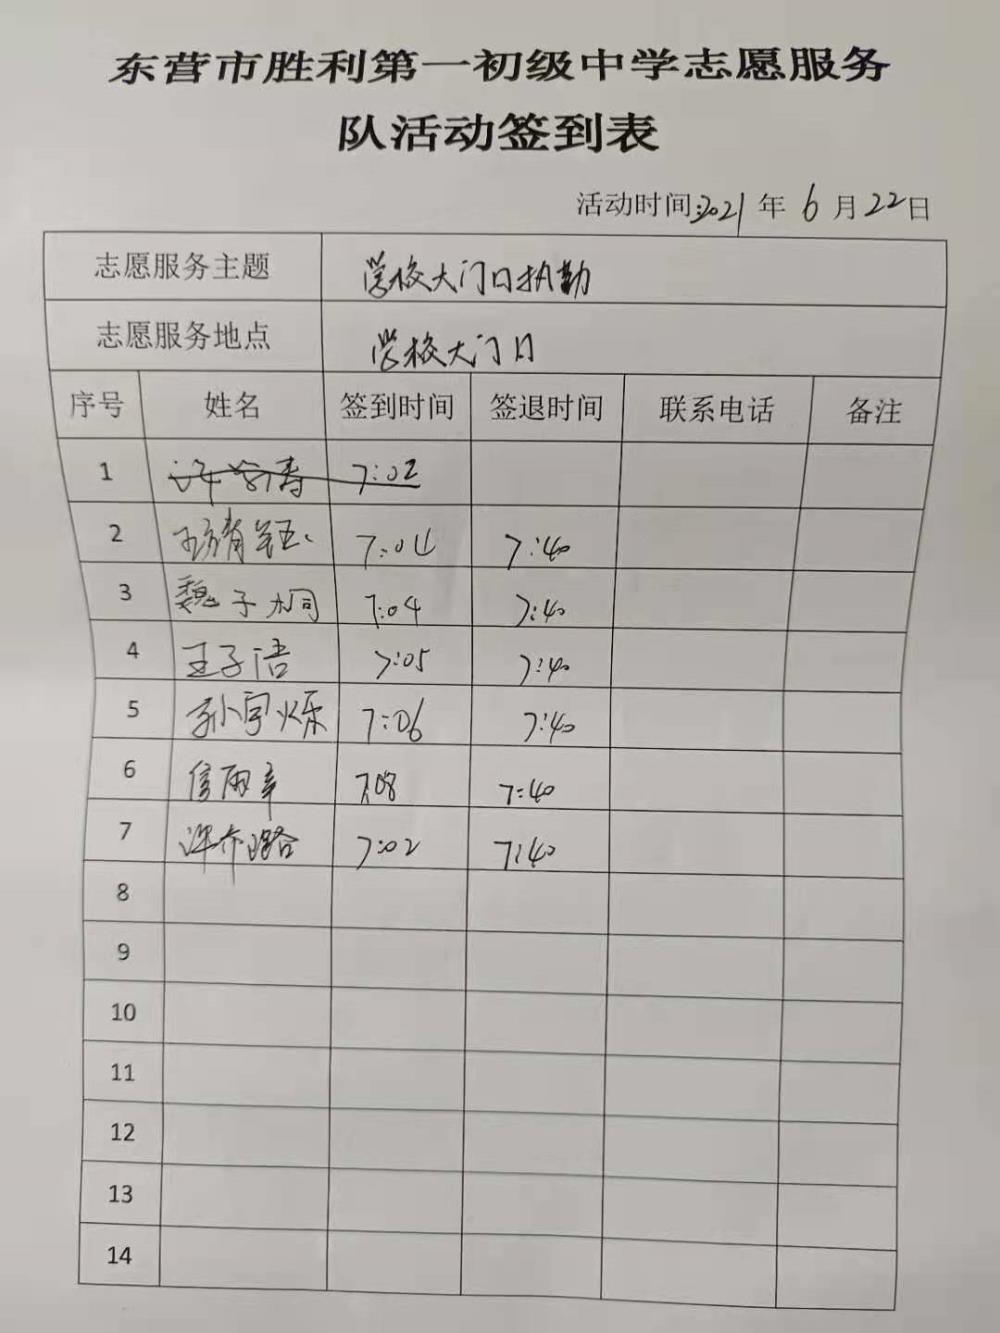 东营市胜利第一初级中学志愿服务
队活动签到表
活动时间:2021年6月22日
志愿服务主题 学校大门口执勤
志愿服务地点 学校大门口
序号 姓名 签到时间 签退时间 联系电话 备注
1 7:02
2 7:04 7:40
3 魏子 7:04 7:40
4 王子语 7:05 7:40
5 孙宇烁 7:06 7:40
6 信雨辛 7:08 7:40
7 7:02 7:40
8
9
10
11
12
13
14